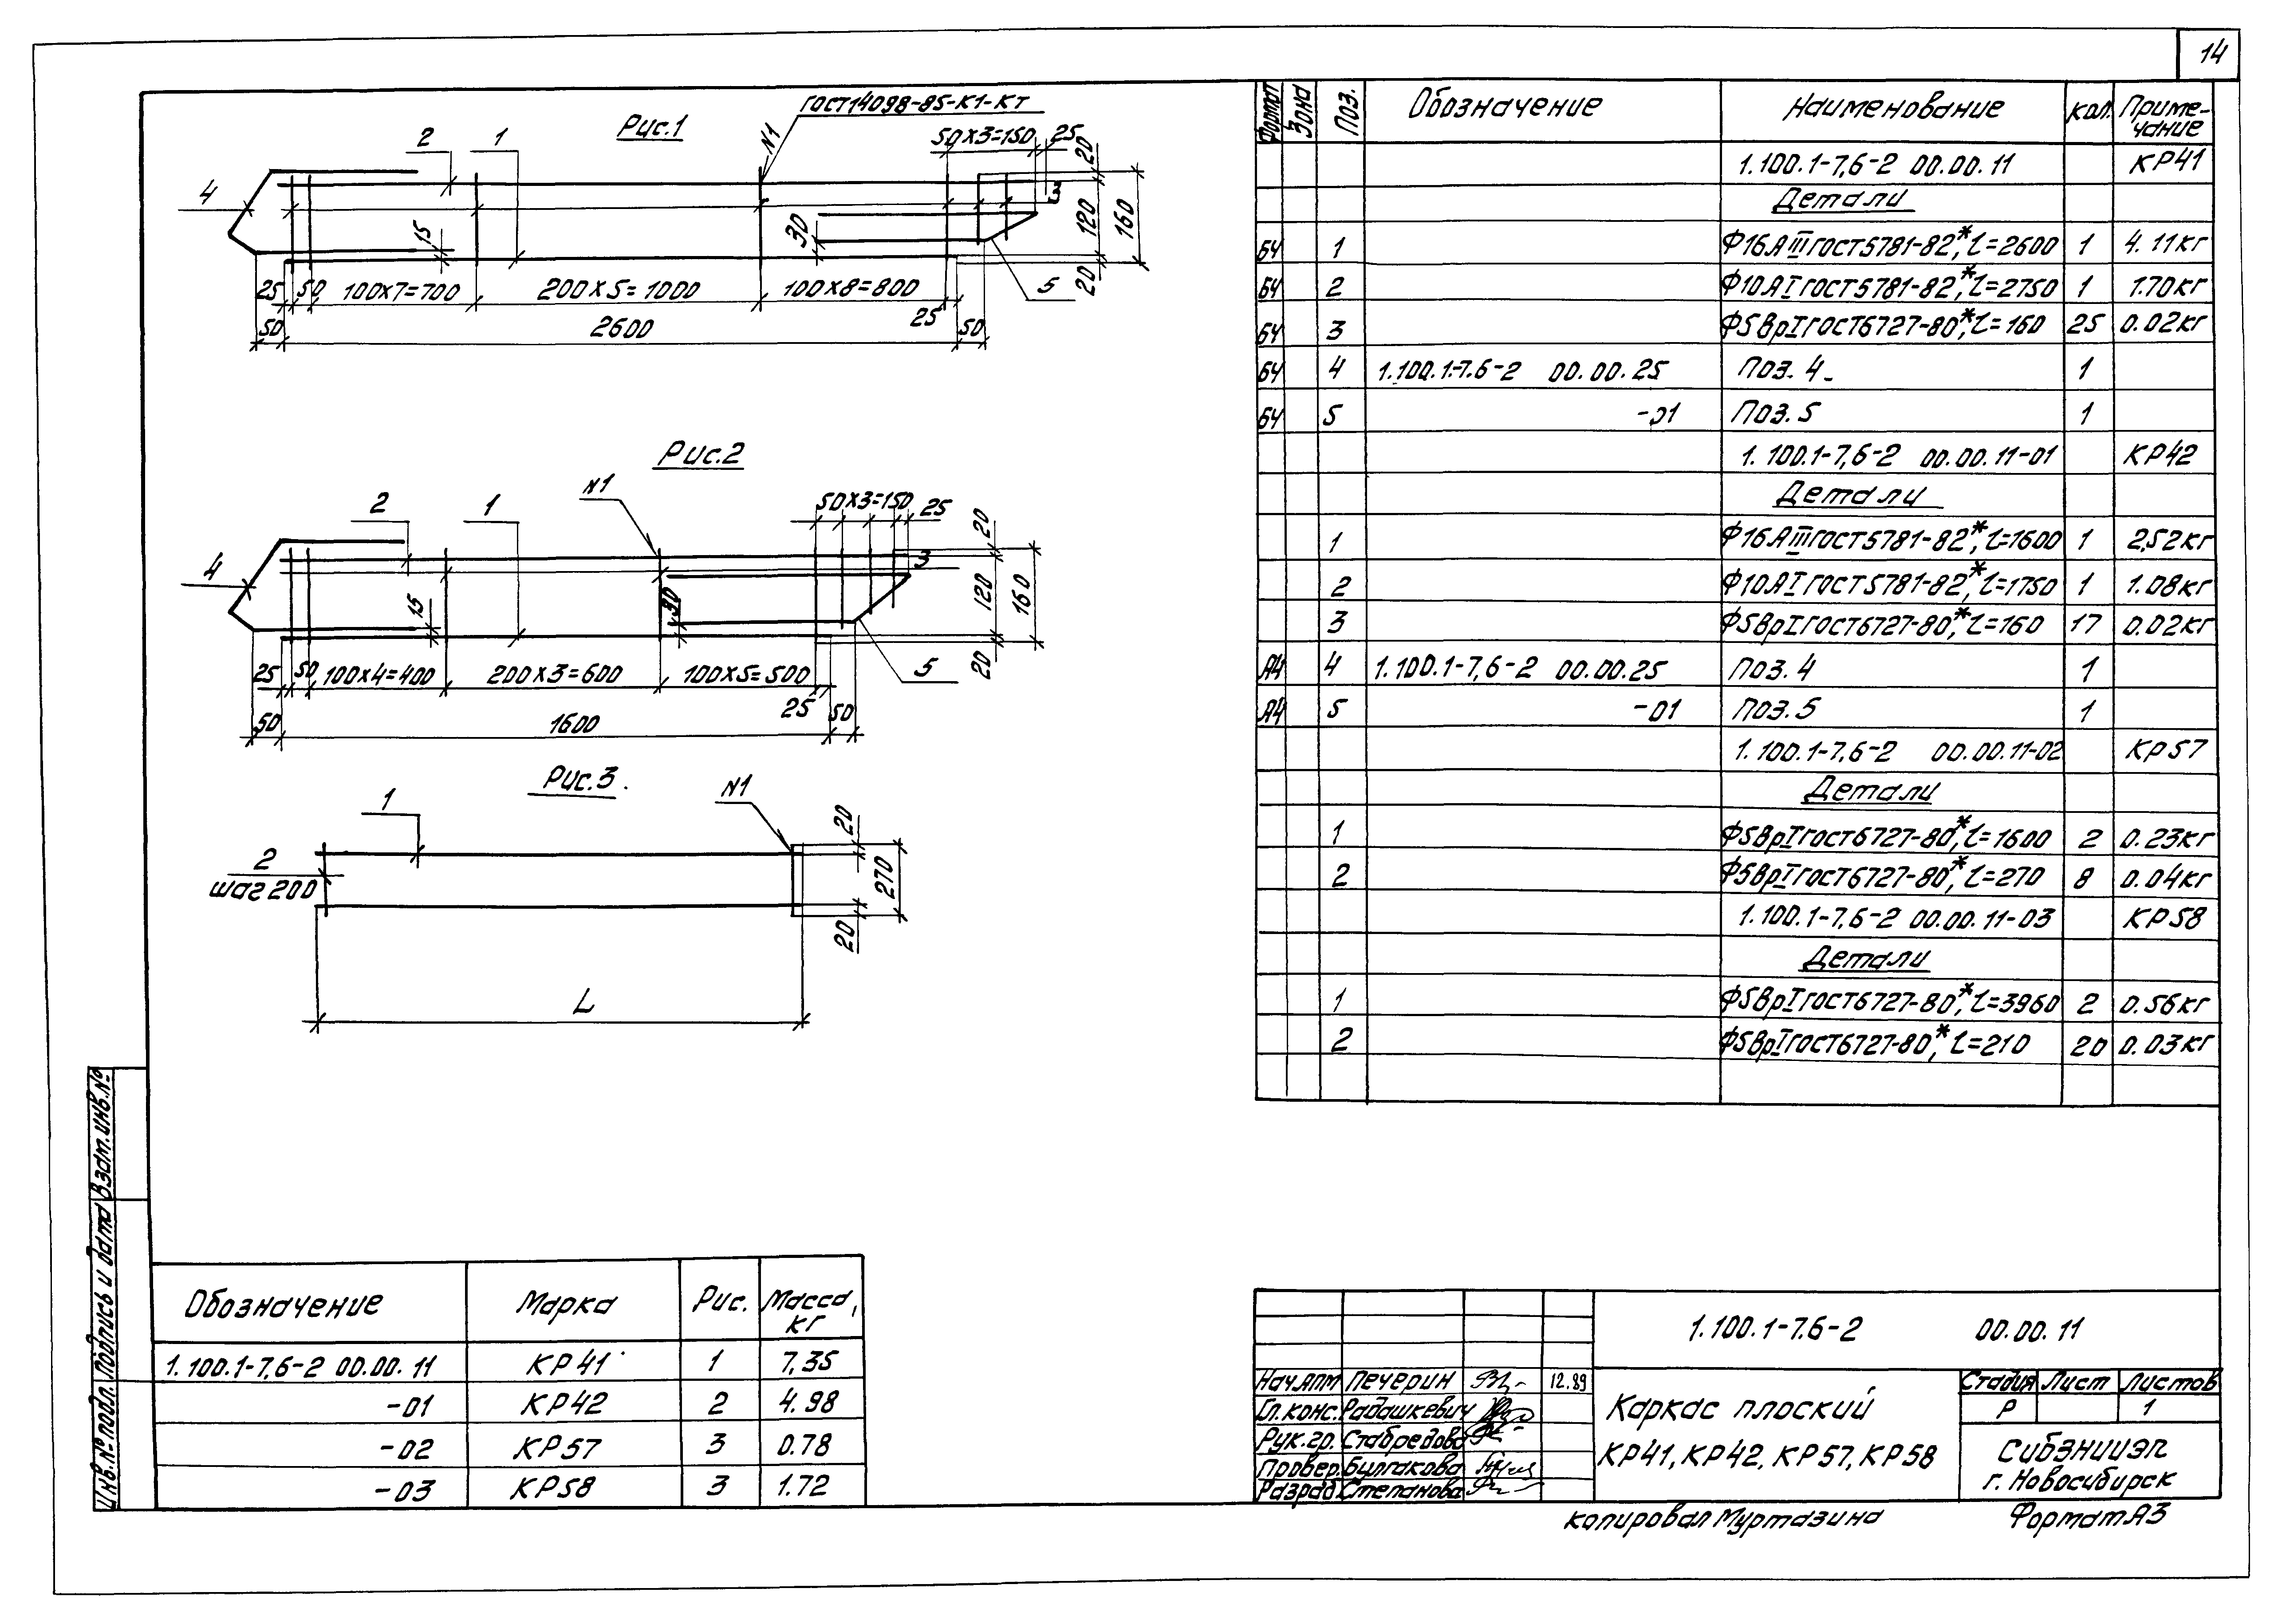 14
Рис.1
ГОСТ14098-85-К1-Кт
N1
2
1
4
3
5
50х3=150
25
20
120
160
20
30
15
25
50
100х7=700
200х5=1000
100х8=800
25
50
2600
50
Рис.2
N1
2
1
4
3
5
50х3=150
25
20
120
160
20
30
15
25
50
100х4=400
200х3=600
100х5=500
25
50
1600
50
Рис.3.
1
N1
2
шаг 200
20
270
20
L
Формат
Зона
Поз.
Обозначение
Наименование
Кол.
Приме-
чание
1.100.1-7,6-2 00.00.11 КР41
Детали
БЧ 1 Ф16АIIIГОСТ5781-82*, l=2600 1 4.11кг
БЧ 2 Ф10АIГОСТ5781-82*, l=2750 1 1.70кг
БЧ 3 Ф5ВрIГОСТ6727-80*, l=160 25 0.02кг
БЧ 4 1.100.1-7.6-2 00.00.25 Поз.4 1
БЧ 5 -01 Поз.5 1
1.100.1-7,6-2 00.00.11-01 КР42
Детали
1 Ф16АIIIГОСТ5781-82*, l=1600 1 2,52кг
2 Ф10АIГОСТ5781-82*, l=1750 1 1.08кг
3 Ф5ВрIГОСТ6727-80*, l=160 17 0.02кг
А4 4 1.100.1-7,6-2 00.00.25 Поз.4 1
А4 5 -01 Поз.5 1
1.100.1-7,6-2 00.00.11-02 КР57
Детали
1 Ф5ВрIГОСТ6727-80*, l=1600 2 0.23кг
2 Ф5ВрIГОСТ6727-80*, l=270 8 0.04кг
1.100.1-7,6-2 00.00.11-03 КР58
Детали
1 Ф5ВрIГОСТ6727-80*, l=3960 2 0.56кг
2 Ф5ВрIГОСТ6727-80*, l=210 20 0.03кг
Инв.№подл. Подпись и дата Взам.инв.№
Обозначение Марка Рис. Масса,
кг
1.100.1-7,6-2 00.00.11 КР41 1 7,35
-01 КР42 2 4.98
-02 КР57 3 0.78
-03 КР58 3 1.72
1.100.1-7.6-2 00.00.11
Нач.АПМ Печерин 12.89
Гл.конс. Радашкевич
Рук.гр. Стабредова
Провер. Булгакова
Разраб. Степанова
Каркас плоский
КР41, КР42, КР57, КР58
Стадия Лист Листов
Р 1
СибЗНИИЭП
г. Новосибирск
Копировал Муртазина
Формат А3